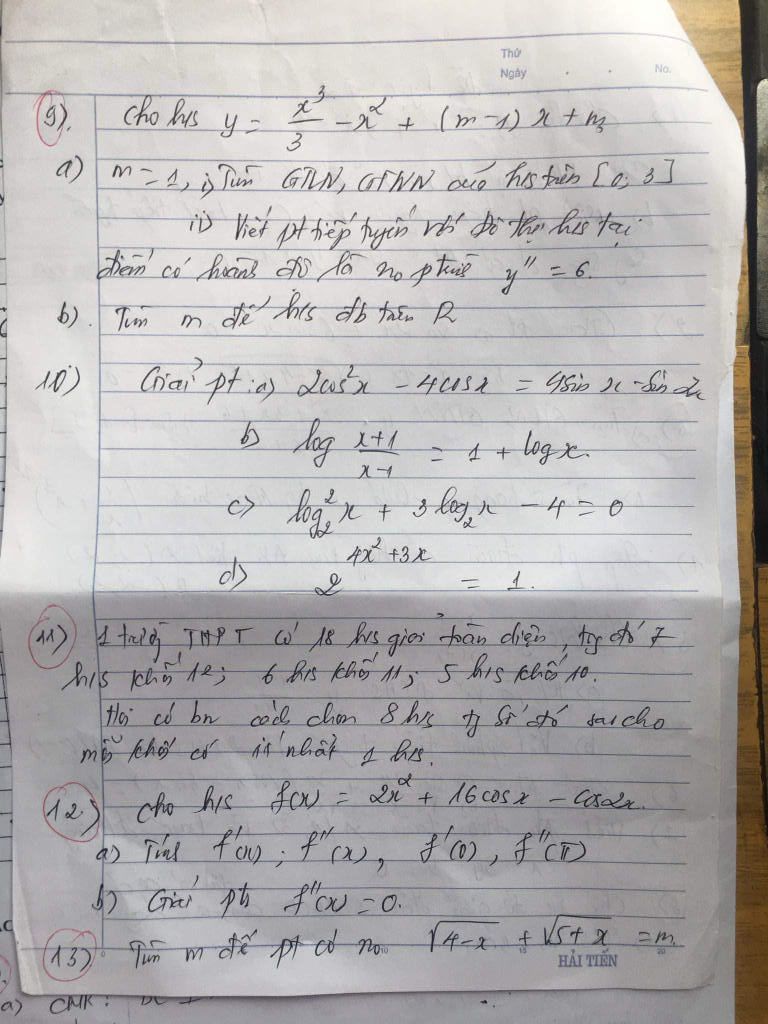 Thứ
Ngày . . No.
9). Cho h/s y = x³/3 - x² + (m-1) x + m
a) m = 1, i) Tìm GTLN, GTNN của h/s trên [0; 3]
ii) Viết pt tiếp tuyến với đồ thị h/s tại
điểm có hoành độ là no ptrình y'' = 6.
b). Tìm m để h/s đb trên R
10) Giải pt: a) 2cos²x - 4cosx = 4sin x - sin 2x
b) log (x+1)/(x-1) = 1 + logx.
c) log₂²x + 3log₂x - 4 = 0
d) 2^(4x²+3x) = 1.
11) 1 trường THPT có 18 h/s giỏi toàn diện, tg đó 7
h/s khối 12; 6 h/s khối 11; 5 h/s khối 10.
Hỏi có bn cách chọn 8 h/s tg số đó sao cho
mỗi khối có ít nhất 1 h/s.
12) Cho h/s f(x) = 2x² + 16cosx - cos2x.
a) Tính f'(x); f''(x), f'(0), f''(π)
b) Giải pt f''(x) = 0.
13) Tìm m để pt có no √(4-x) + √(5+x) = m
HẢI TIẾN
a) CMR: